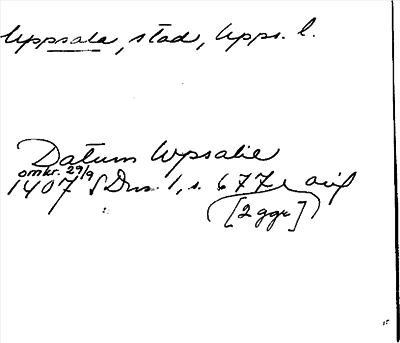 Uppsala, stad, Upps. l.
Datum Wpsalie
omkr. 29/9
1407 SDns. 1, s. 677, avs
[2 ggr]